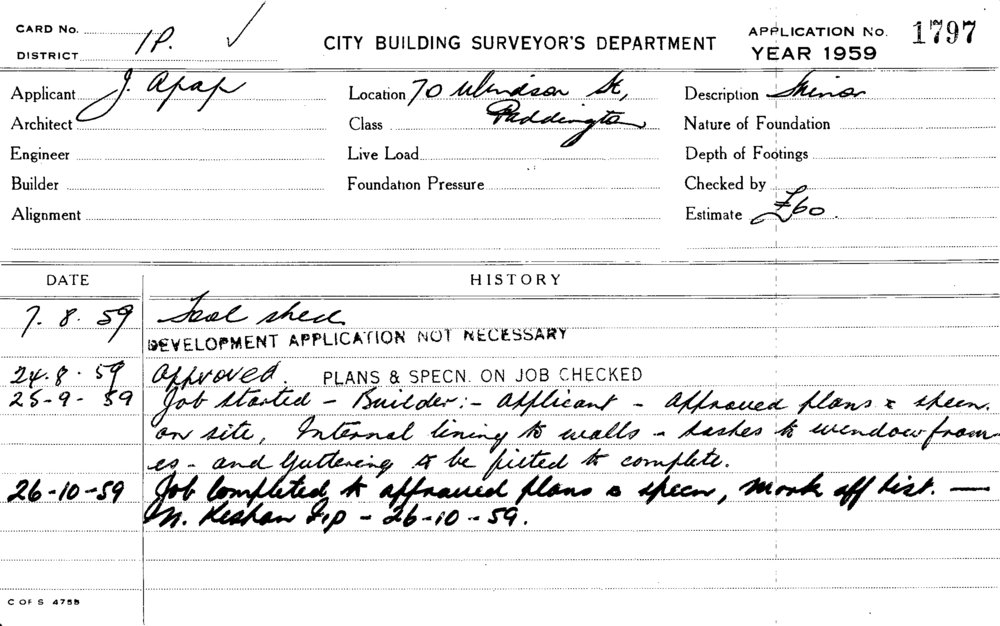 CARD No.
DISTRICT 1P.
CITY BUILDING SURVEYOR'S DEPARTMENT
APPLICATION No. 1797
YEAR 1959
Applicant J. Apap
Location 70 Windsor St,
Paddington
Description Minor
Architect
Class
Nature of Foundation
Engineer
Live Load
Depth of Footings
Builder
Foundation Pressure
Checked by
Alignment
Estimate £60.
DATE HISTORY
7.8.59 Tool shed
DEVELOPMENT APPLICATION NOT NECESSARY
24.8.59 Approved. PLANS & SPECN. ON JOB CHECKED
25-9-59 Job started - Builder:- Applicant - Approved plans & specn.
on site, Internal lining to walls - sashes to window fram-
es - and guttering to be fitted to complete.
26-10-59 Job completed to approved plans & specn, Mark off list. —
- 26-10-59.
C OF S 475B